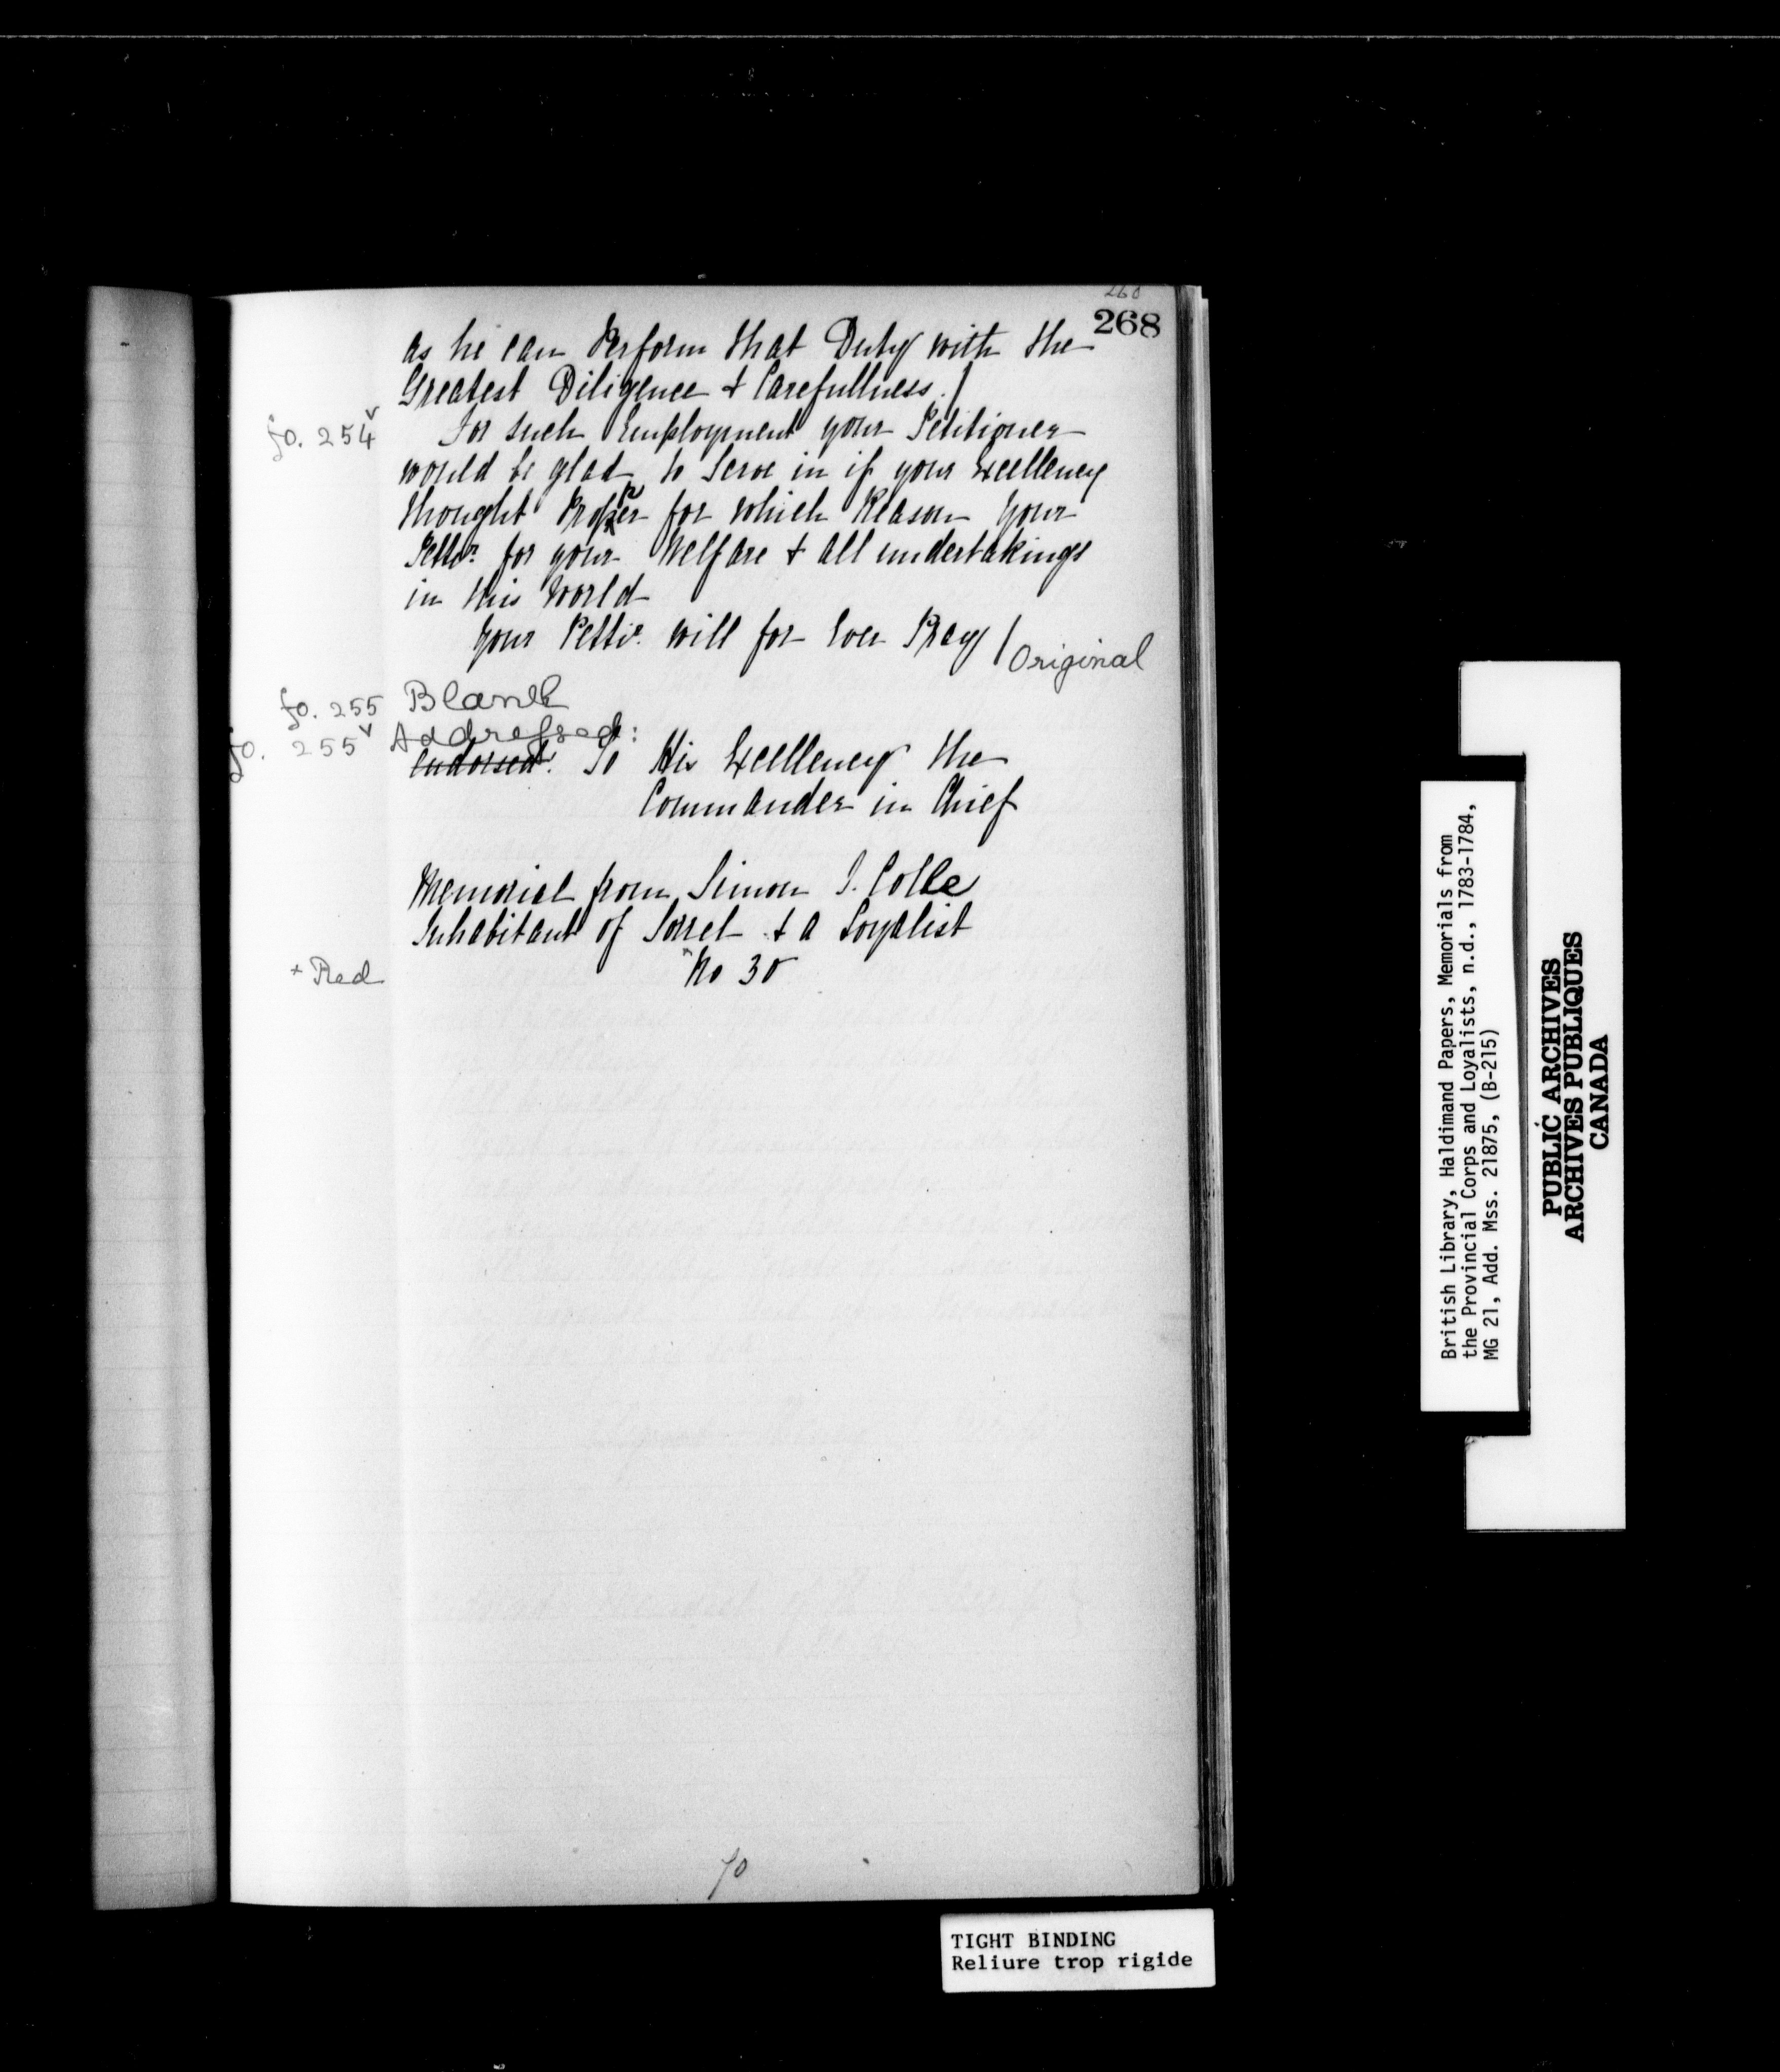 260
268
as he can Perform that Duty with the
Greatest Diligence & Carefullness./
fo. 254v For such Employment your Petitioner
would be glad to Serve in if your Excellency
thought Proper for which Reason your
Pettir. for your Welfare & all undertakings
in this World
Your Pettir. will for Ever Pray / Original
fo. 255 Blank
fo. 255v Addressed:
Endorsed. To His Excellency the
Commander in Chief
Memorial from Simon J. Colle
Inhabitant of Sorrel & a Loyalist
+ Red +No 30
70
British Library, Haldimand Papers, Memorials from
the Provincial Corps and Loyalists, n.d., 1783-1784,
MG 21, Add. Mss. 21875, (B-215)
PUBLIC ARCHIVES
ARCHIVES PUBLIQUES
CANADA
TIGHT BINDING
Reliure trop rigide